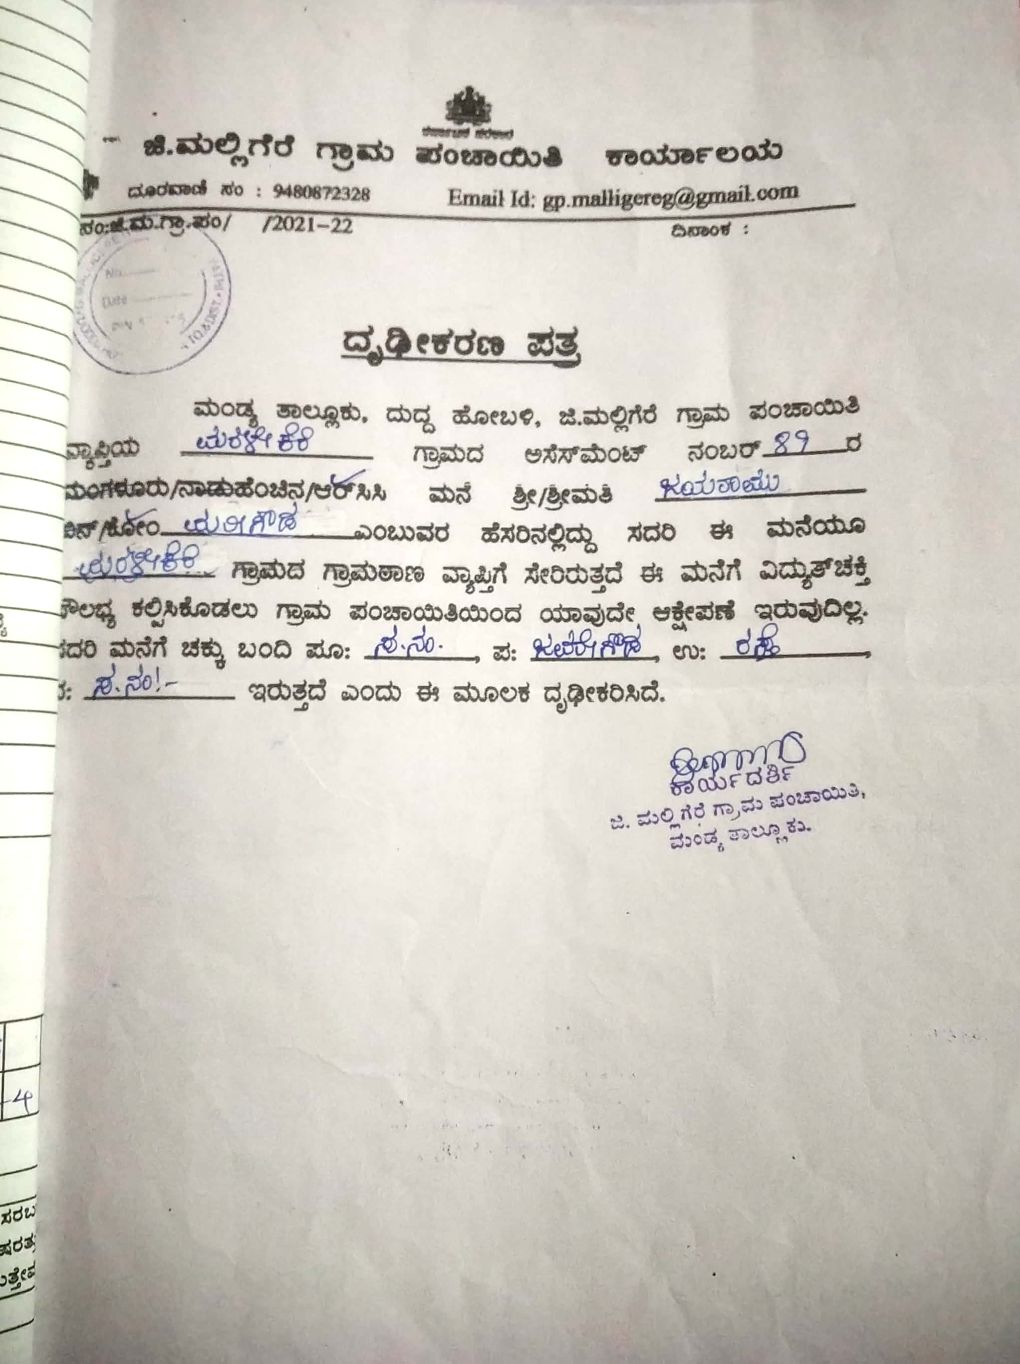 ಕರ್ನಾಟಕ ಸರಕಾರ
ಜಿ.ಮಲ್ಲಿಗೆರೆ ಗ್ರಾಮ ಪಂಚಾಯಿತಿ ಕಾರ್ಯಾಲಯ
ದೂರವಾಣಿ ಸಂ : 9480872328 Email Id: gp.malligereg@gmail.com
ನಂ:ಜಿ.ಮ.ಗ್ರಾ.ಪಂ/ /2021-22 ದಿನಾಂಕ :
No
Date
ದೃಢೀಕರಣ ಪತ್ರ
ಮಂಡ್ಯ ತಾಲ್ಲೂಕು, ದುದ್ದ ಹೋಬಳಿ, ಜಿ.ಮಲ್ಲಿಗೆರೆ ಗ್ರಾಮ ಪಂಚಾಯಿತಿ
ವ್ಯಾಪ್ತಿಯ ಮರಳೇಕೆರೆ ಗ್ರಾಮದ ಅಸೆಸ್‌ಮೆಂಟ್ ನಂಬರ್ 89 ರ
ಮಂಗಳೂರು/ನಾಡುಹೆಂಚಿನ/ಆರ್‌ಸಿಸಿ ಮನೆ ಶ್ರೀ/ಶ್ರೀಮತಿ ಜಯರಾಮು
ಬಿನ್/ಕೋಂ ಮರೀಗೌಡ ಎಂಬುವರ ಹೆಸರಿನಲ್ಲಿದ್ದು ಸದರಿ ಈ ಮನೆಯೂ
ಮರಳೇಕೆರೆ ಗ್ರಾಮದ ಗ್ರಾಮಠಾಣ ವ್ಯಾಪ್ತಿಗೆ ಸೇರಿರುತ್ತದೆ ಈ ಮನೆಗೆ ವಿದ್ಯುತ್‌ಚಕ್ತಿ
ಸೌಲಭ್ಯ ಕಲ್ಪಿಸಿಕೊಡಲು ಗ್ರಾಮ ಪಂಚಾಯಿತಿಯಿಂದ ಯಾವುದೇ ಆಕ್ಷೇಪಣೆ ಇರುವುದಿಲ್ಲ.
ಸದರಿ ಮನೆಗೆ ಚಕ್ಕು ಬಂದಿ ಪೂ: ಸ.ನಂ. , ಪ: ಜವರೇಗೌಡ , ಉ: ರಸ್ತೆ ,
ದ: ಸ.ನಂ!- ಇರುತ್ತದೆ ಎಂದು ಈ ಮೂಲಕ ದೃಢೀಕರಿಸಿದೆ.
ಕಾರ್ಯದರ್ಶಿ
ಜಿ. ಮಲ್ಲಿಗೆರೆ ಗ್ರಾಮ ಪಂಚಾಯಿತಿ,
ಮಂಡ್ಯ ತಾಲ್ಲೂಕು.